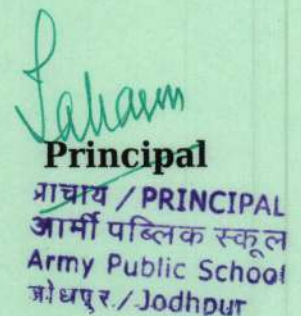 Principal
प्राचार्य / PRINCIPAL
आर्मी पब्लिक स्कूल
Army Public School
जोधपुर / Jodhpur